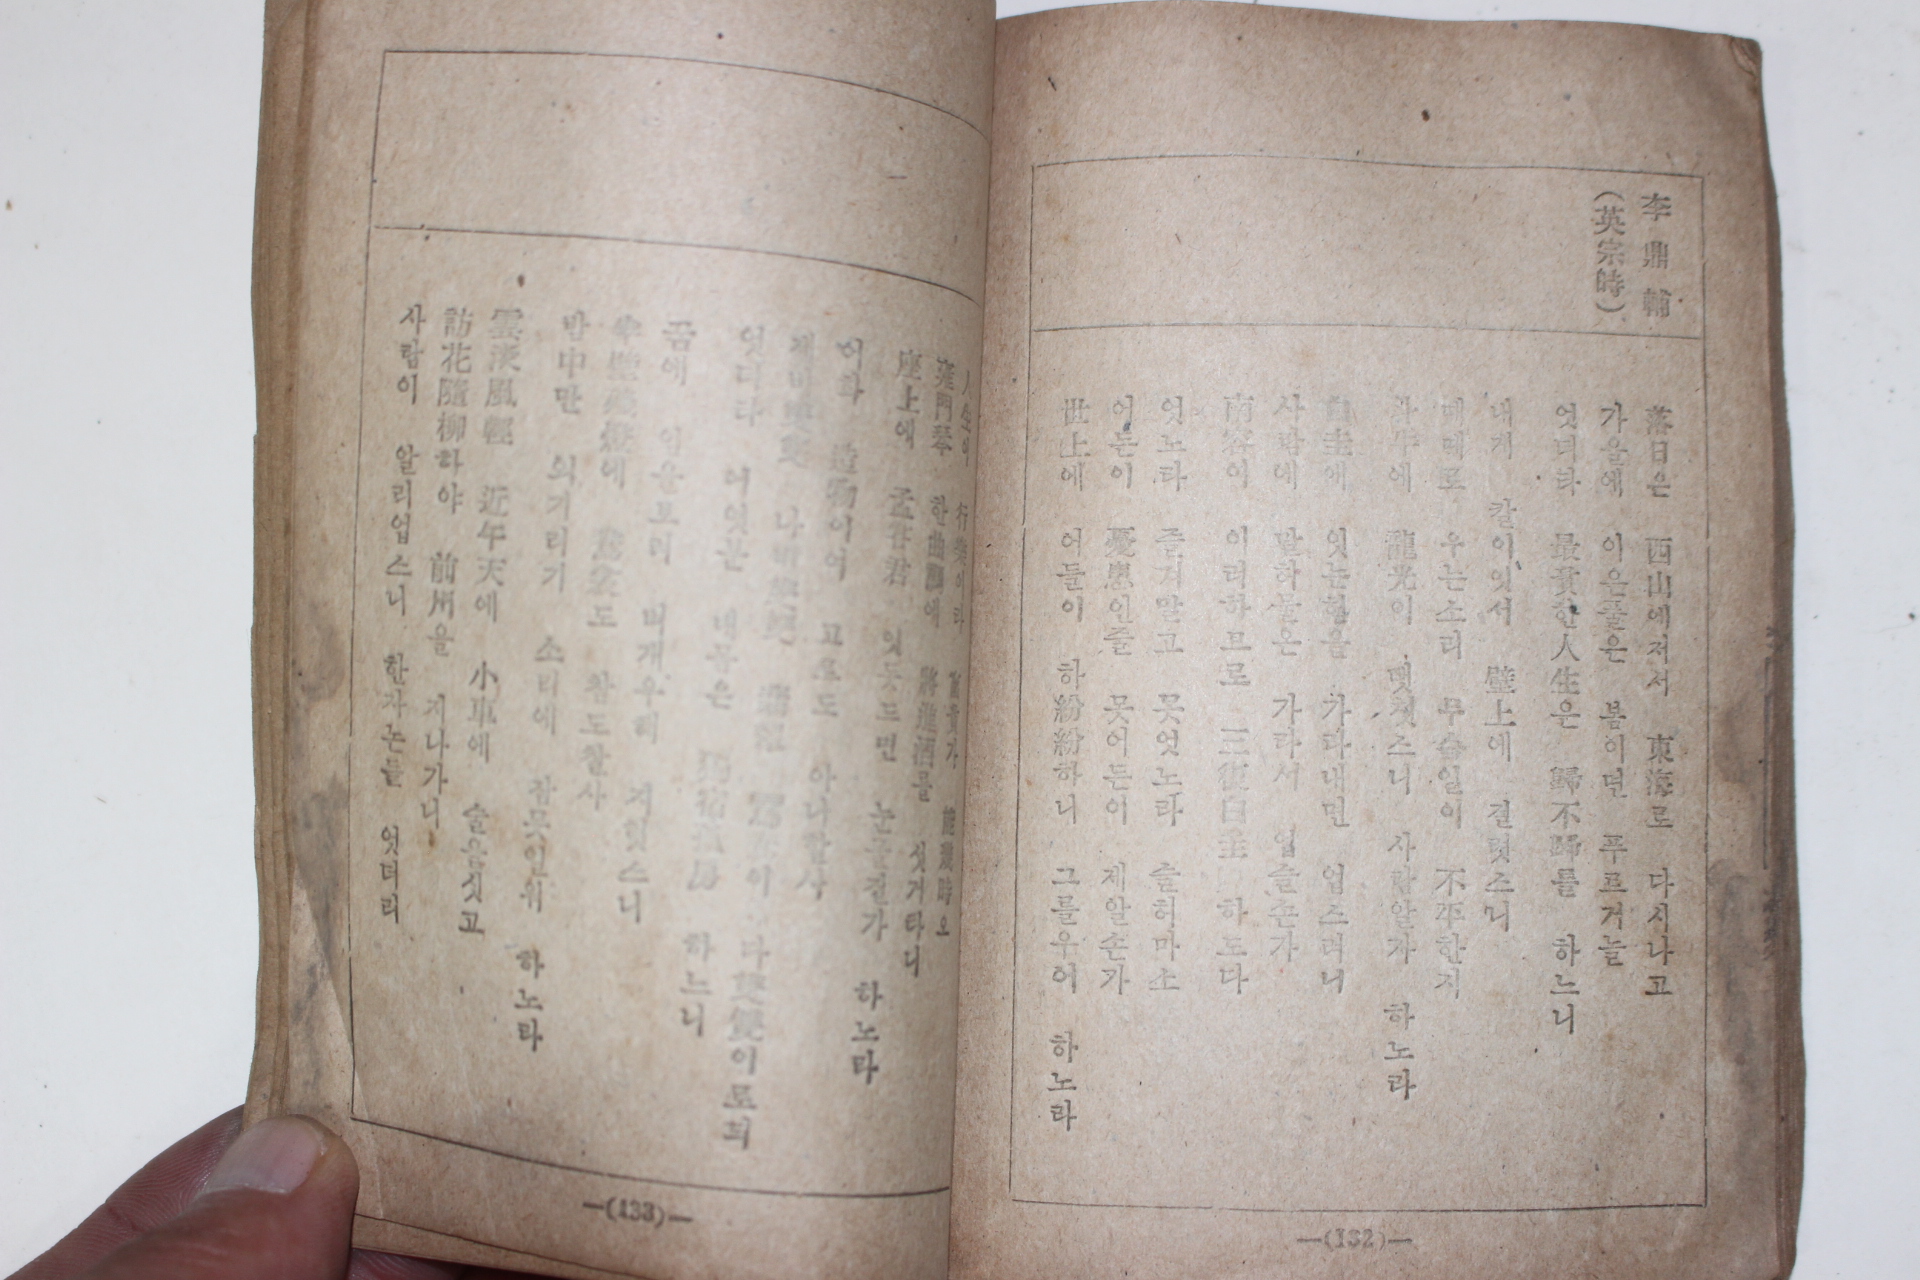 李鼎輔
(英宗時)
落日은 西山에저서 東海로 다시나고
가을에 이은풀은 봄이면 푸르거늘
엇더타 最貴한人生은 歸不歸를 하느니
내게 칼이잇서 壁上에 걸렷스니
때때로 우는소리 무슴일이 不平한지
斗牛에 龍光이 댓첫스니 사람알가 하노라
白圭에 잇는험을 가라내면 업스려니
사람에 말하믈은 가라서 업슬손가
南容이 이러하므로 三復白圭 하도다
엇노라 즐겨말고 못엇노라 슬허마소
어든이 憂患인줄 못어든이 제알손가
世上에 어들이 하紛紛하니 그를우어 하노라
—(132)—
人生이 行樂이라 富貴가 能幾時오
雍門琴 한曲調에 將進酒를 섯거타니
座上에 孟嘗君 잇돗드면 눈물질가 하노라
어화 造物이여 고로도 아니할사
엇더타 어엿분 내몸은 하느니
꿈에 임을보러 벼개우헤 지혓스니
半壁殘燈에 鴦衾도 참도찰사
밤中만 외기러기 소리에 잠못일워 하노라
雲淡風輕 近午天에 小車에 술을싯고
訪花隨柳하야 前川을 지나가니
사람이 알리업스니 한자논들 엇더리
—(133)—